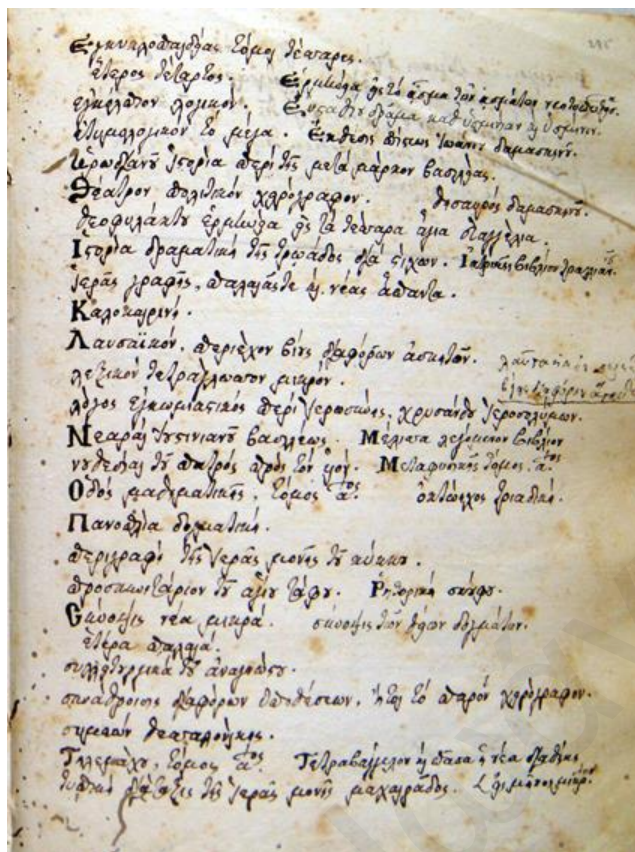 Ἐγκυκλοπαιδείας τόμοι τέσσαρες.
ἕτερος τέταρτος. Ἑρμηνεία εἰς τὸ ᾆσμα τῶν ᾀσμάτων
ἐγκόλπιον λογικόν.
ἐτυμολογικὸν τὸ μέγα. Ἔκθεσις πίστεως Ἰωάννου δαμασκηνοῦ.
Ἡρωδιανοῦ ἱστορία περὶ τῆς μετὰ μάρκον βασιλείας.
Θέατρον πολιτικὸν χειρόγραφον. θησαυρὸς δαμασκηνοῦ.
θεοφυλάκτου ἑρμηνεία εἰς τὰ τέσσαρα ἅγια εὐαγγέλια.
Ἱστορία δραματικὴ τῆς τρωάδος διὰ στίχων. Ἰατρικῆς βιβλίον
ἱερᾶς γραφῆς, παλαιᾶς τε καὶ νέας ἅπαντα.
Καλοκαιρινή.
Λαυσαϊκόν, περιέχον βίους διαφόρων ἀσκητῶν.
λεξικὸν τετράγλωττον μικρόν.
λόγος ἐγκωμιαστικὸς περὶ ἱερωσύνης, χρυσάνθου ἱεροσολύμων.
Νεαραὶ Ἰουστινιανοῦ βασιλέως. Μέλισσα λεγόμενον βιβλίον
νουθεσίαι τοῦ πατρὸς πρὸς τὸν υἱόν. Μεταφυσικῆς τόμος αος.
Ὁδὸς μαθηματικῆς, τόμος αος. ὀκτώηχος τριαδική.
Πανοπλία δογματική.
περιγραφὴ τῆς ἱερᾶς μονῆς τοῦ κύκκου.
προσκυνητάριον τοῦ ἁγίου τάφου. Ῥητορικὴ σκούφου.
Σύνοψις νέα μικρά. σύνοψις τῶν θείων δογμάτων.
ἑτέρα παλαιά.
συλλειτουργικὰ τοῦ ἀναγνώστου.
συνάθροισις διαφόρων ὑποθέσεων, ἤτοι τὸ παρὸν χειρόγραφον.
συμεὼν θεσσαλονίκης.
Τηλεμάχου, τόμος αος. Τετραβάγγελον καὶ πᾶσα ἡ νέα διαθήκη
τυπικὴ διάταξις τῆς ἱερᾶς μονῆς μαχαιράδος.